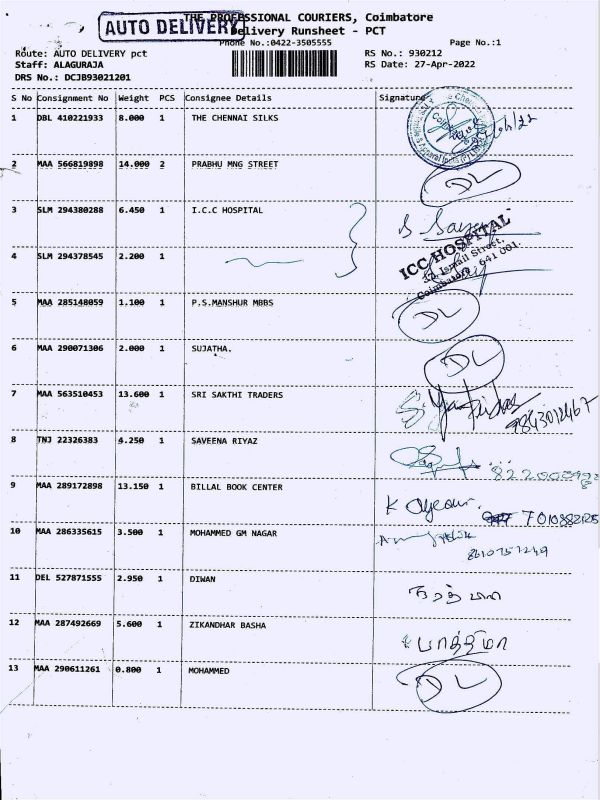 AUTO DELIVERY
THE PROFESSIONAL COURIERS, Coimbatore
Delivery Runsheet - PCT
Phone No.:0422-3505555 Page No.:1
Route: AUTO DELIVERY pct RS No.: 930212
Staff: ALAGURAJA RS Date: 27-Apr-2022
DRS No.: DCJB93021201
S No Consignment No Weight PCS Consignee Details Signature
1 DBL 410221933 8.000 1 THE CHENNAI SILKS
2 MAA 566819898 14.000 2 PRABHU MNG STREET DL
3 SLM 294380288 6.450 1 I.C.C HOSPITAL
ICC HOSPITAL
Ismail Street,
Coimbatore 641 001.
4 SLM 294378545 2.200 1
5 MAA 285148059 1.100 1 P.S.MANSHUR MBBS DL
6 MAA 290071306 2.000 1 SUJATHA. DL
7 MAA 563510453 13.600 1 SRI SAKTHI TRADERS
9843012467
8 TNJ 22326383 4.250 1 SAVEENA RIYAZ
9 MAA 289172898 13.150 1 BILLAL BOOK CENTER
10 MAA 286335615 3.500 1 MOHAMMED GM NAGAR
11 DEL 527871555 2.950 1 DIWAN
12 MAA 287492669 5.600 1 ZIKANDHAR BASHA பாத்திமா
13 MAA 290611261 0.800 1 MOHAMMED DL